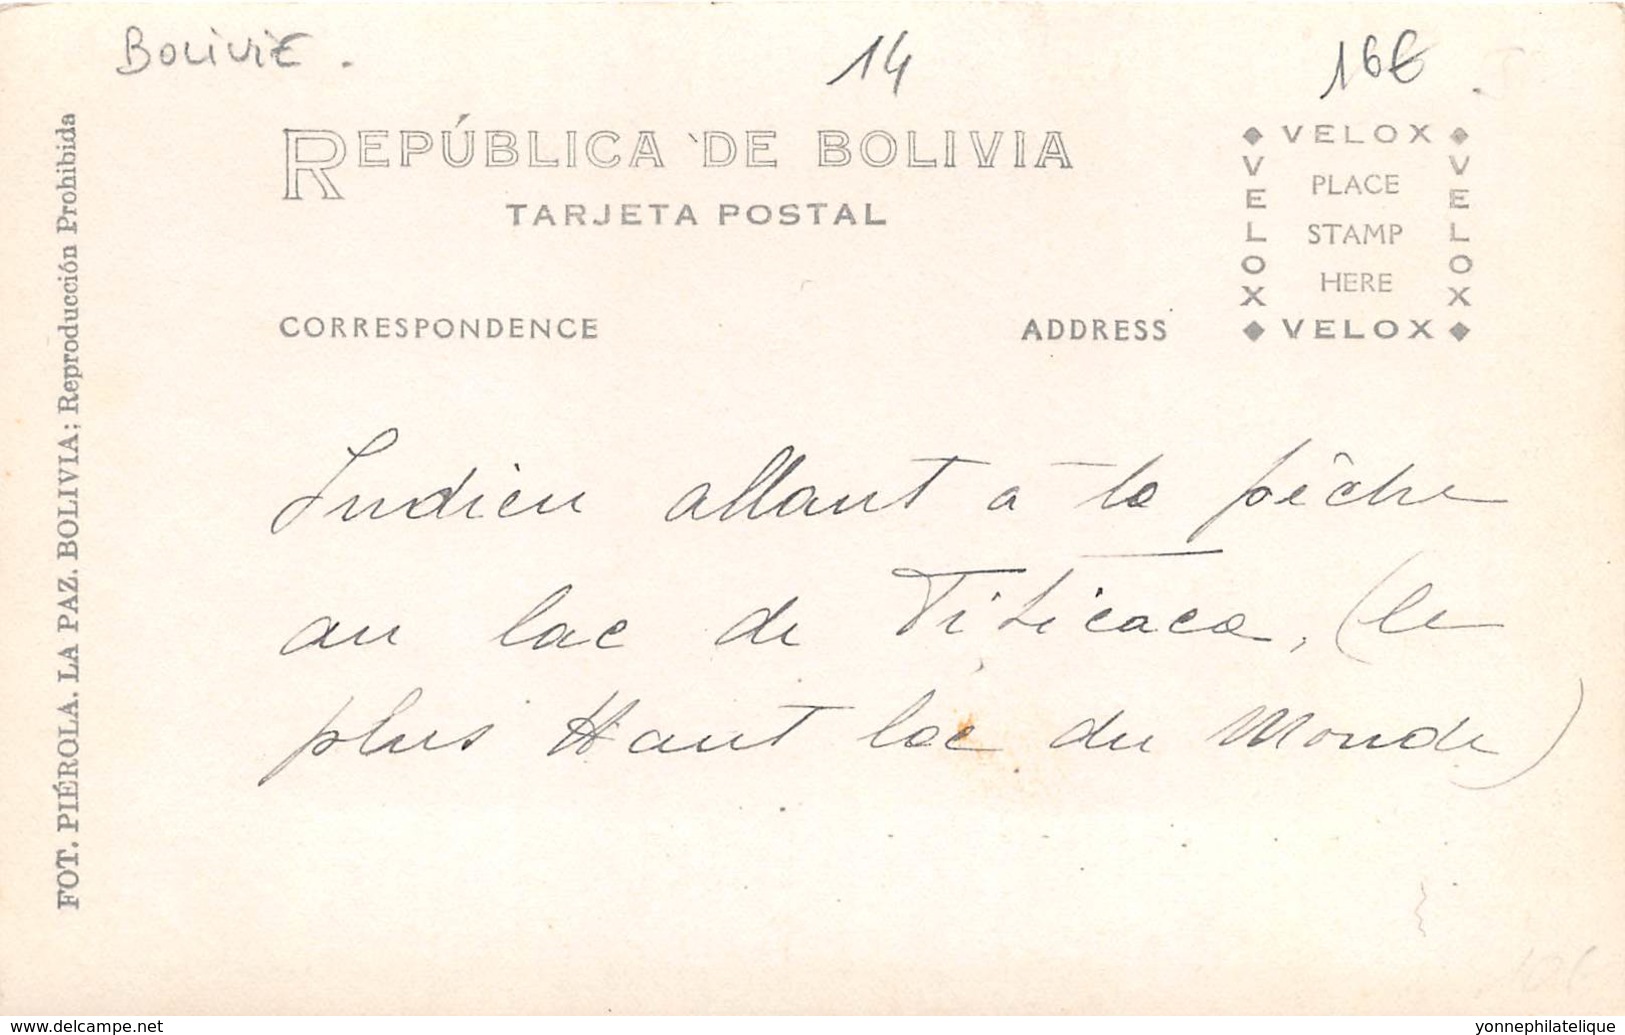 Bolivie.
14
16€
REPÚBLICA DE BOLIVIA
TARJETA POSTAL
VELOX
VELOX
PLACE
STAMP
HERE
VELOX
VELOX
CORRESPONDENCE
ADDRESS
FOT. PIÉROLA. LA PAZ. BOLIVIA; Reproducción Prohibida
Indien allant à la pêche
au lac de Titicaca, (le
plus Haut lac du Monde)
www.delcampe.net
yonnephilatelique